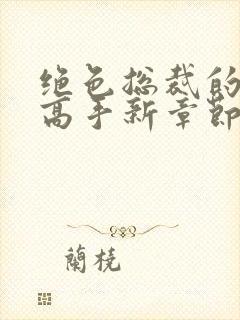 绝色总裁的
高手新章节
蘭橈